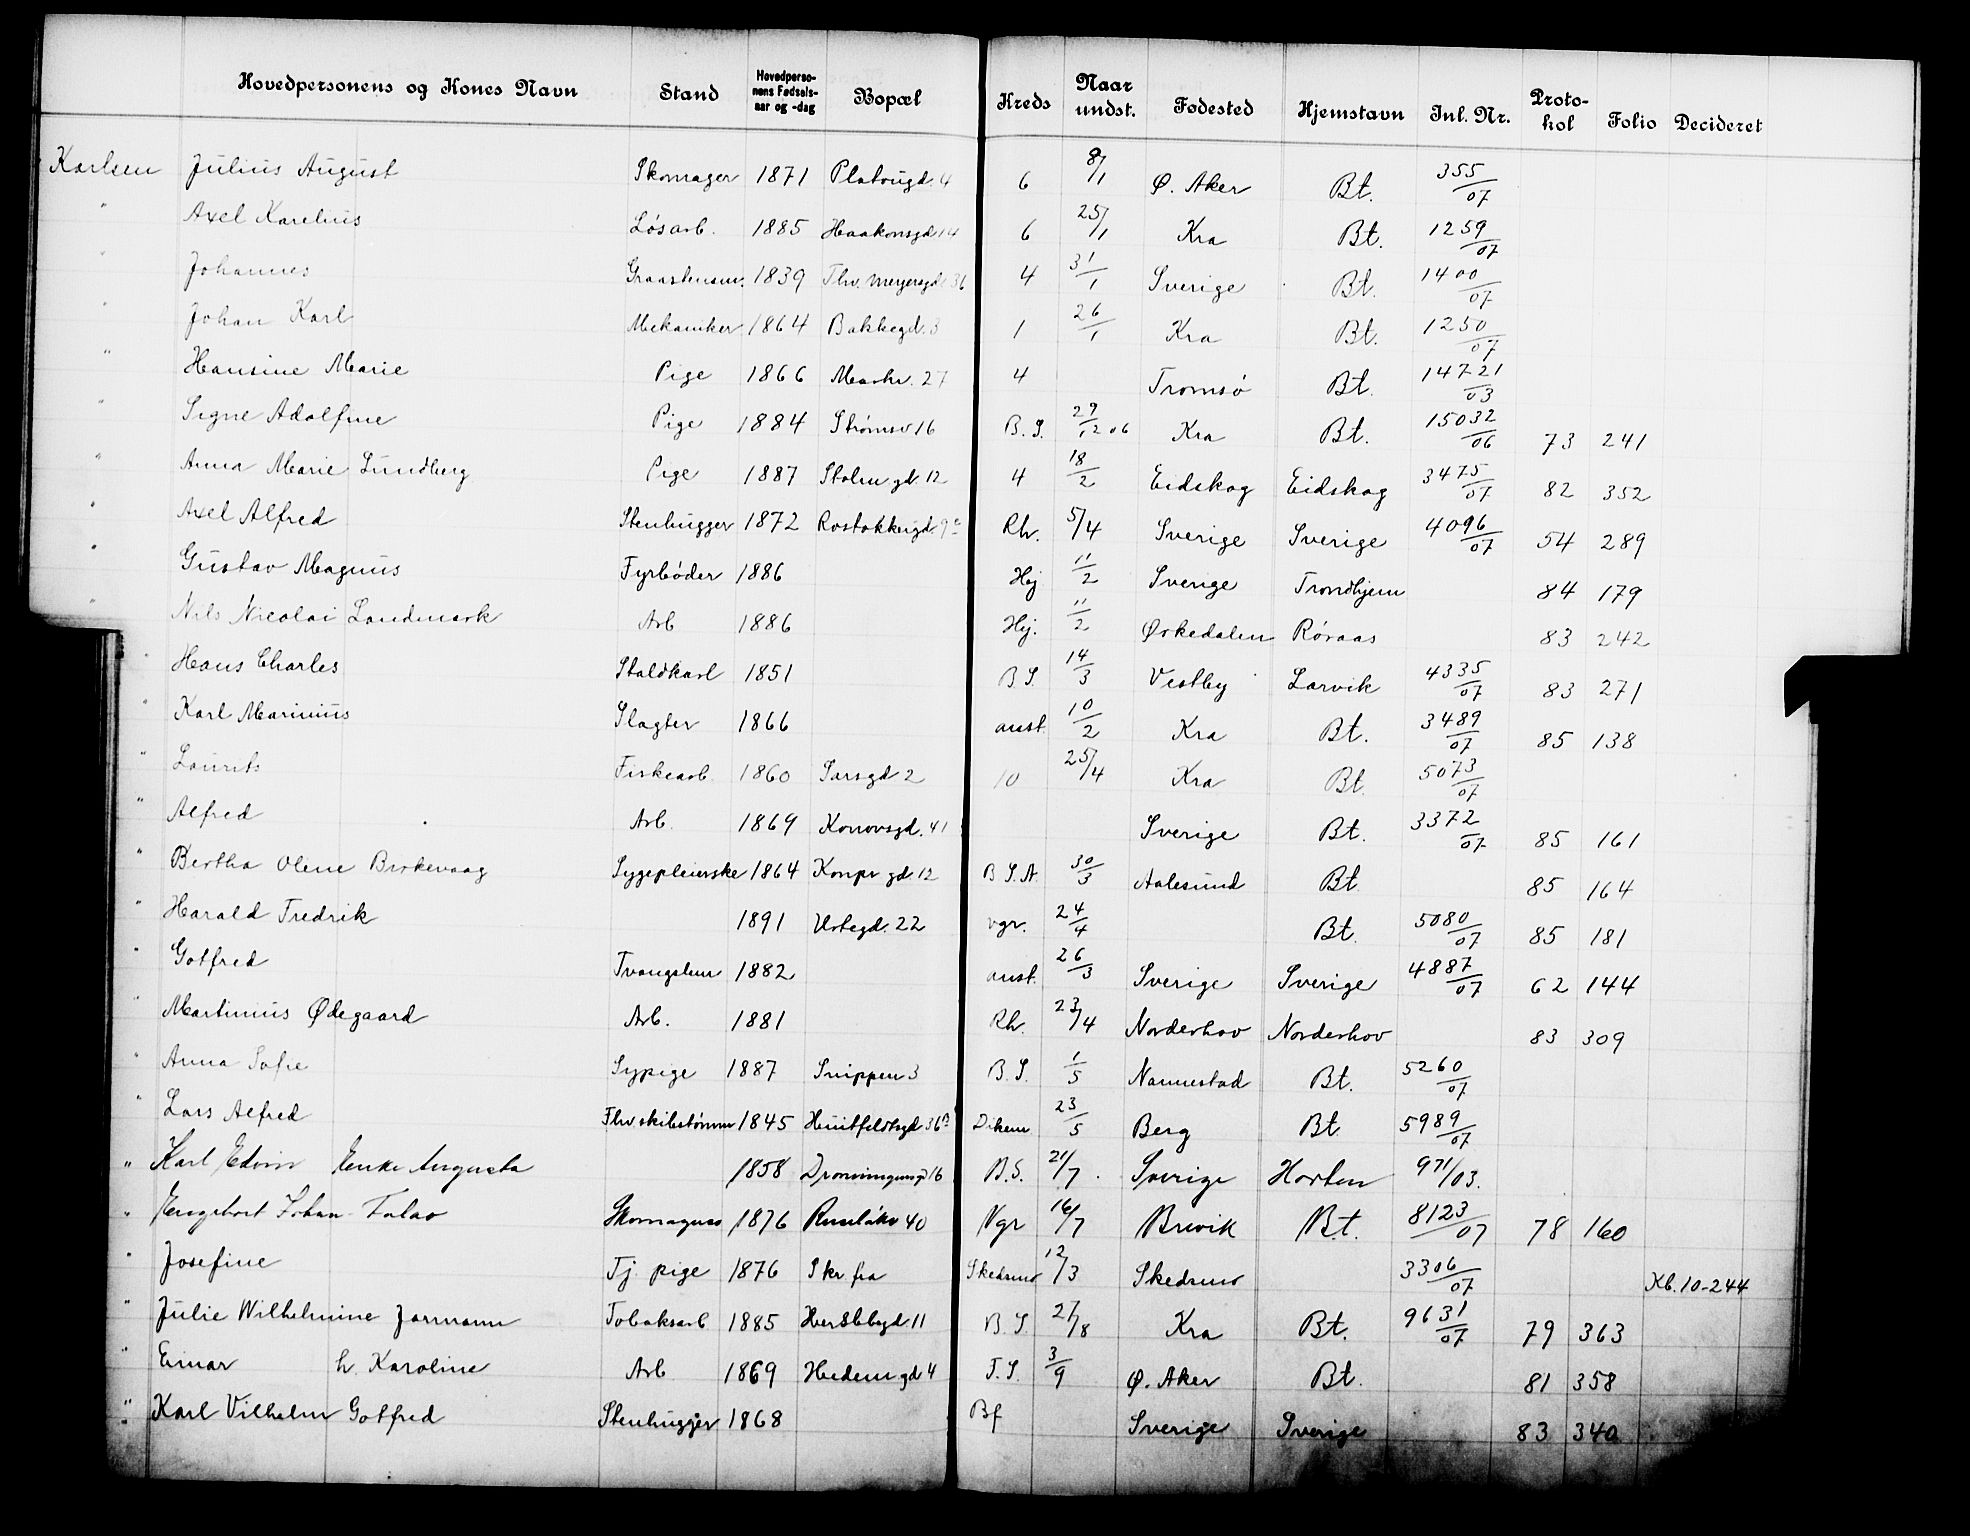 Hovedpersonens og Kones Navn Stand Hovedpersonens Fødselsaar og -dag Bopæl Kreds Naar undst. Fødested Hjemstavn Inl. Nr. Protokol Folio Decideret
Karlsen Julius August Skomager 1871 Platougd. 4 6 8/1 Ø. Aker Bt. 355/07
" Axel Karelius Løsarb. 1885 Haakonsgd 14 6 25/1 Kra Bt. 1259/07
" Johannes 1839 Thv. Meyersgd 36 4 31/1 Sverige Bt. 1400/07
" Johan Karl Mekaniker 1864 Bakkegd. 3 1 26/1 Kra Bt. 1250/07
" Hansine Marie Pige 1866 Markv. 27 4 Tromsø Bt. 14721/03
" Signe Adolfine Pige 1884 Strømsv 16 B. S. 29/12 06 Kra Bt. 15032/06 73 241
" Anna Marie Lundberg Pige 1887 Stolm gd. 12 4 18/2 Eidskog Eidskog 3475/07 82 352
" Axel Alfred Stenhugger 1872 Rh. 5/4 Sverige Sverige 4096/07 54 289
" Gustav Magnus Fyrbøder 1886 Hej 11/2 Sverige Trondhjem 84 179
" Nils Nicolai Landmark Arb 1886 Hej. 11/2 Ørkedalen Røraas 83 242
" Hans Charles Staldkarl 1851 B. S. 14/3 Vestby Larvik 4335/07 83 271
" Karl Marinius Slagter 1866 anst. 10/2 Kra Bt. 3489/07 85 138
" Laurits Fiskearb. 1860 Sarsgd 2 10 25/4 Kra Bt. 5073/07
" Alfred Arb. 1869 Konowsgd. 41 Sverige Bt. 3372/07 85 161
" Bertha Oline Birkevaag Sygepleierske 1864 Konpr gd. 12 B. S. A. 30/3 Aalesund Bt. 85 164
" Harald Fredrik 1891 Urtegd. 22 vgr. 24/4 Bt. 5080/07 85 181
" Gotfred Tvangslem 1882 anst. 26/3 Sverige Sverige 4887/07 62 144
" Martinius Ødegaard Arb. 1881 Rh. 23/4 Norderhov Norderhov 83 309
" Anna Sofie Sypige 1887 Snippen 3 B. S. 1/5 Nannestad Bt. 5260/07
" Lars Alfred 1845 Huitfeldtsgd 36 B Dikem. 23/5 Berg Bt. 5989/07
" Karl Edvin Enke Augusta 1858 Dronningensgd 16 B. S. 21/7 Sverige Horten 971/03.
" Engebort Johan Falao 1876 Ruseløkv 40 Vgr 16/7 Brevik Bt. 8123/07 78 160
" Josefine Tj. pige 1876 Skr. fra Skedsmo 12/3 Skedsmo 3306/07 Kb. 10-244
" Julie Wilhelmine Jormann Tobaksarb 1885 Herslebsgd. 11 B. S. 27/8 Kra Bt. 9631/07 79 363
" Einar h. Karoline Arb 1869 Hedem gd 4 T. S. 3/9 Ø. Aker Bt. 81 358
" Karl Vilhelm Gotfred Stenhugger 1868 Bf Sverige Sverige 83 340